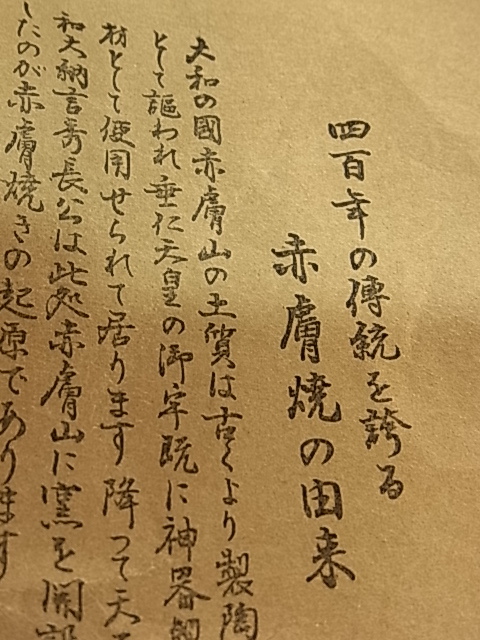 四百年の傳統を誇る
赤膚焼の由来
大和の國赤膚山の土質は古くより製陶
として謳われ垂仁天皇の御宇既に神器
材として使用せられて居ります降って天
和大納言秀長公は此処赤膚山に窯を開
したのが赤膚焼きの起原であります